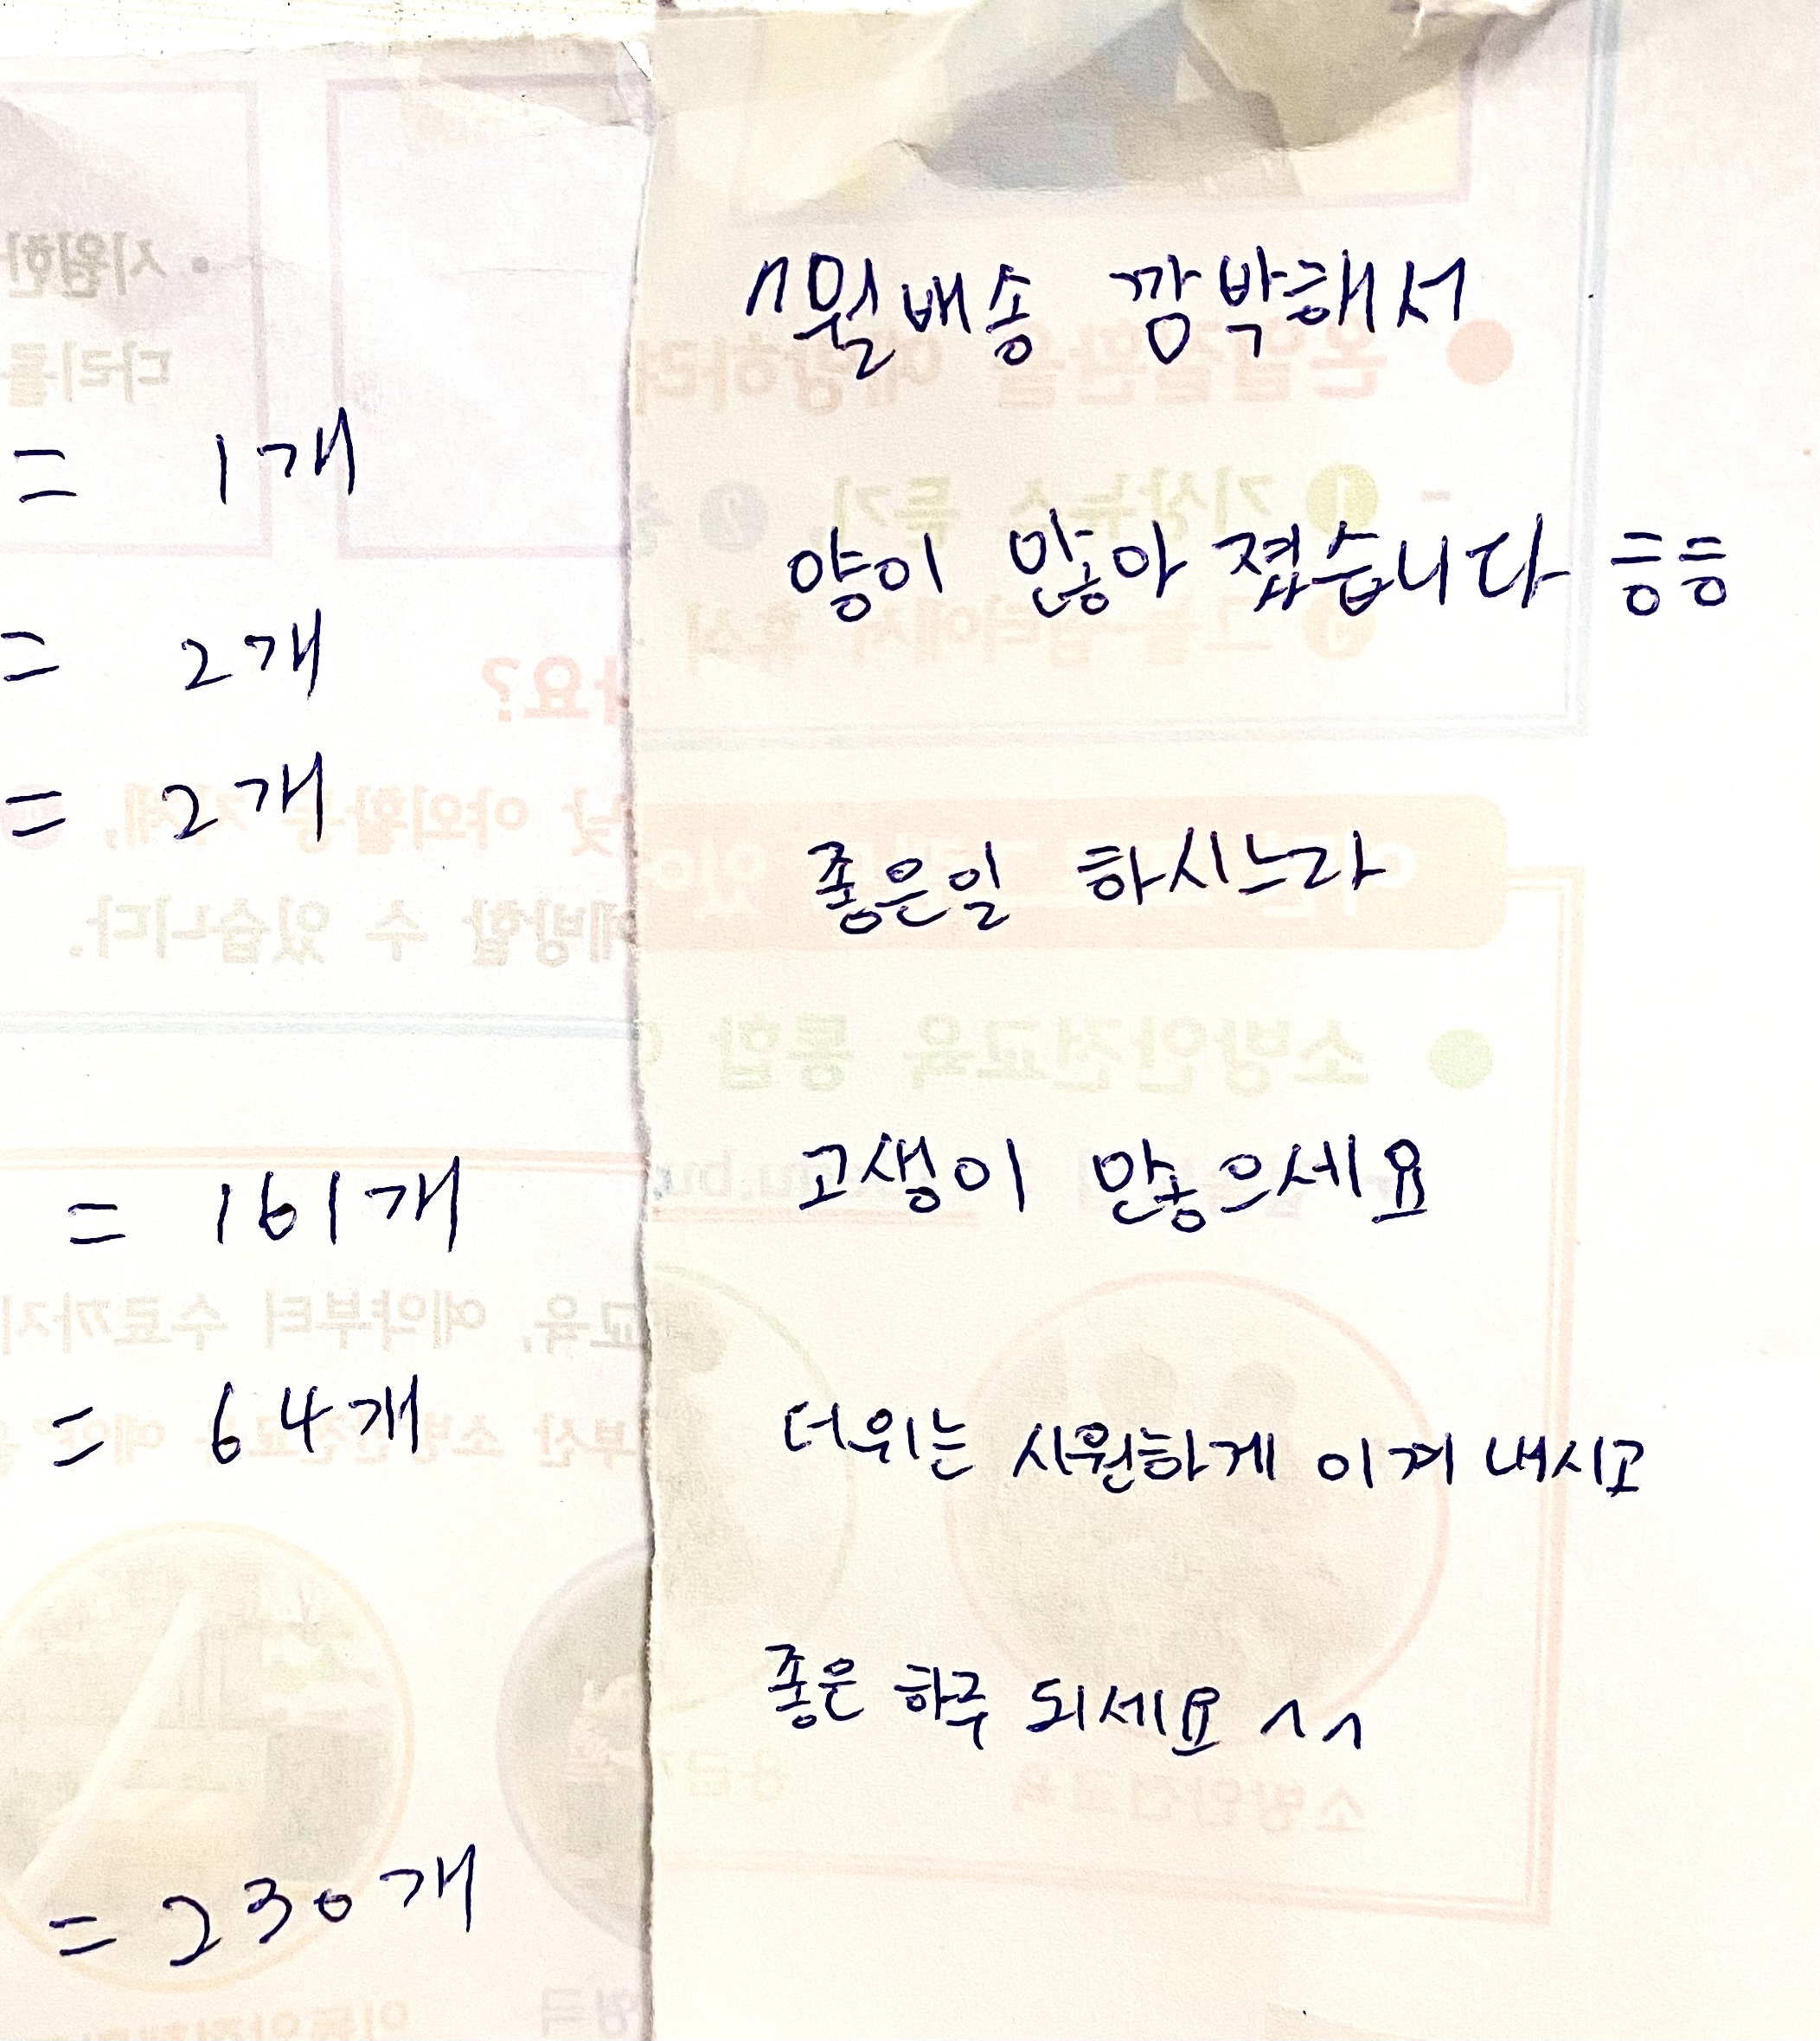 = 1개
= 2개
= 2개
= 161개
= 64개
= 230개
7월배송 깜박해서
양이 많아 졌습니다 ㅎㅎ
좋은일 하시느라
고생이 많으세요
더위는 시원하게 이겨 내시고
좋은 하루 되세요 ^^